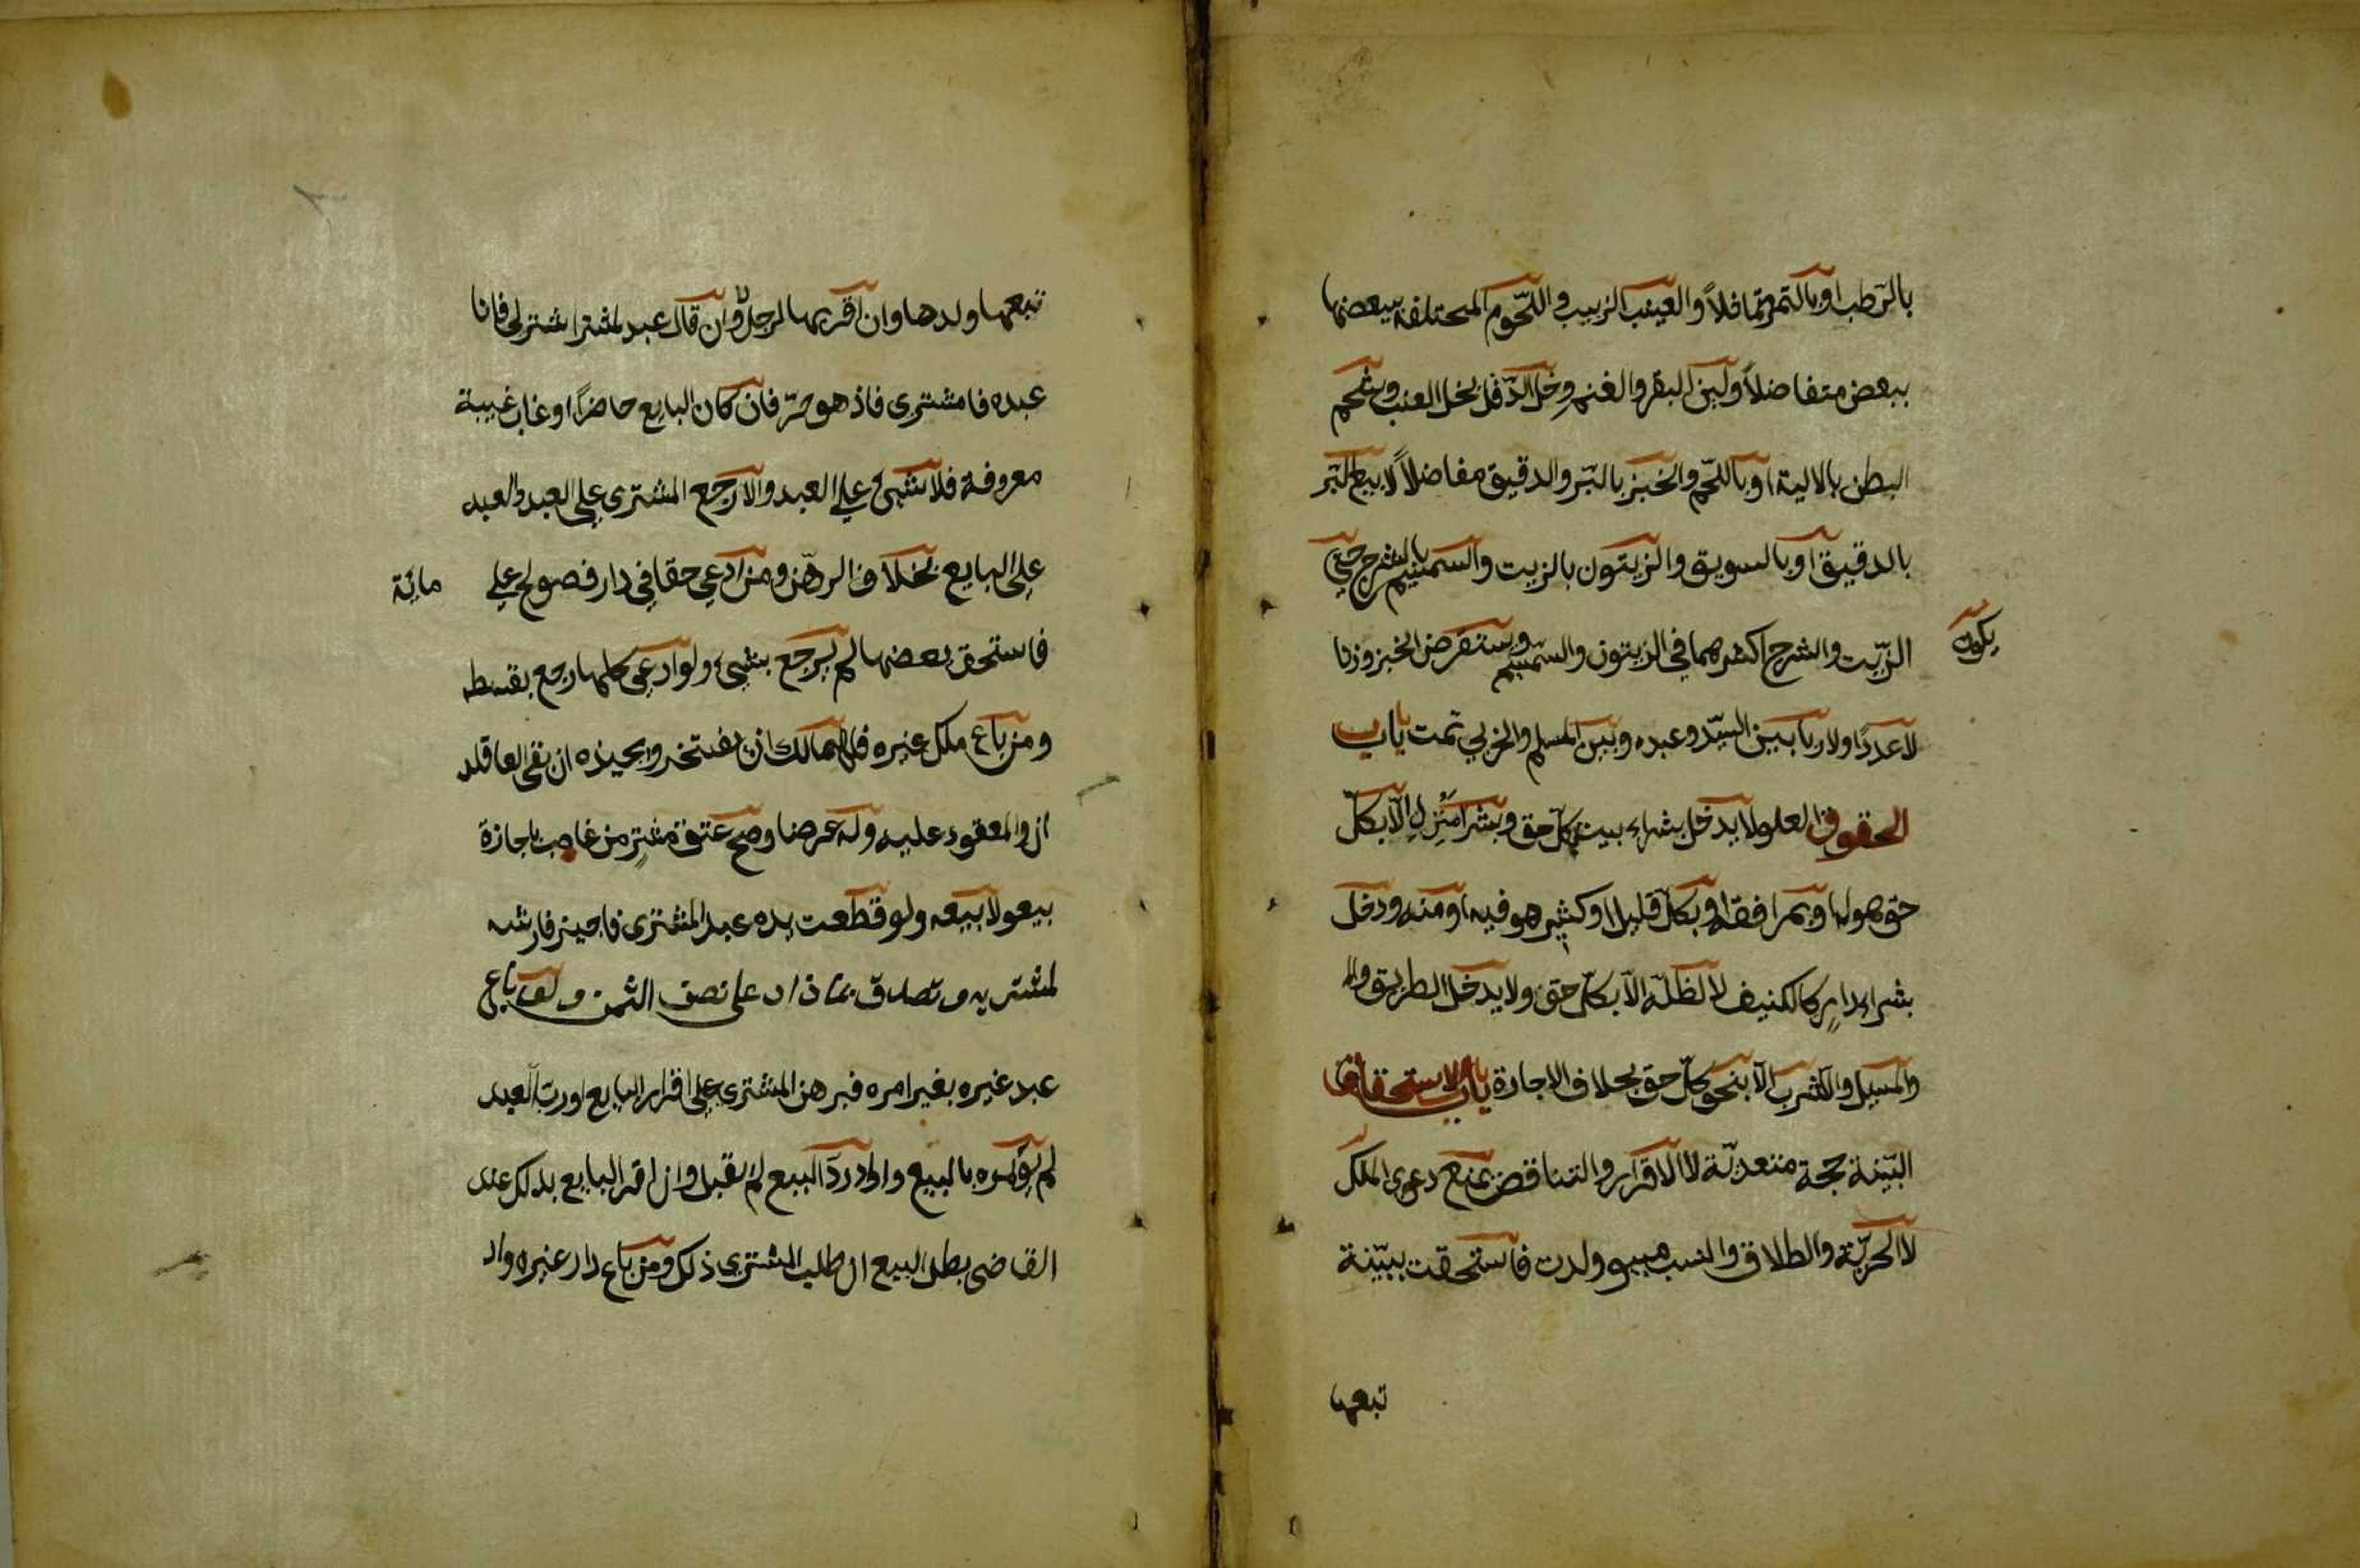 بالرّطب او بالتمر متماثلاً والعنب الزبيب واللّحوم المختلفة بعضها
ببعض متفاضلاً ولبن البقر والغنم وخل الدّقل بخل العنب وشحم
البطن بالالية او باللّحم والخبز بالبّر والدقيق مفاضلاً لا بيع البّر
بالدقيق او بالسويق والزيتون بالزيت والسمسم بالشرج حتّي
يكون
الزّيت والشرج اكثر هما في الزيتون والسّمسم ويستقرض الخبز وزنا
لا عددًا ولا ربا بين السيّد وعبده وبين المسلم والحربي تمت باب
الحقوق العلو لا يدخل بشراء بيت بكلّ حق وبشرا منزلٍ الّا بكلّ
حق هو له او بمرافقه او بكلّ قليل او كثير هو فيه او منه ودخل
بشراء دارٍ كالكنيف لا الظلّة الّا بكلّ حق ولا يدخل الطريق وال
والمسيل والشرب الّا بنحو كلّ حق بخلاف الاجارة باب الاستحقاق
البّينة حجة متعديّة لا الاقرار والتناقض يمنع دعوى الملك
لا الحريّة والطلاق والنسب مبيعو ولدت فاستحقت ببّينة
تبعها
تبعها ولدها وان اقر بها لرجل لا وان قال عبد لمشتر اشترلى فانا
عبده فا مشترى فاذ هو حرّ فان كان البايع حاضرًا او غاب غيبة
معروفة فلا شيئ علي العبد والا رجع المشترى علي العبد والعبد
على البايع بخلاف الرهن ومن ادعي حقا في دار فصولح علي مائة
فاستحق بعضها لم يرجع بشيئ ولو ادعي كلها رجع بقسطه
ومن باع ملك غيره فللمالك ان يفسخه ويجيزه ان بقى العاقد
ان والمعقود عليه وله عرضا وصح عتق مشترٍ من غاصب باجازة
بيعو لا بيعه ولو قطعت يده عبد المشترى فاجيز فارشه
لمشتريه وتصدق بما زاد على نصف الثمن ولو باع
عبد غيره بغير امره فبرهن المشترى علي اقرار البايع او رب العبد
لم يؤمره بالبيع واراد ردّ البيع لم يقبل وان اقر البايع بذلك عند
القاضى بطل البيع ان طلب المشترى ذلك ومن باع دار غيره واد